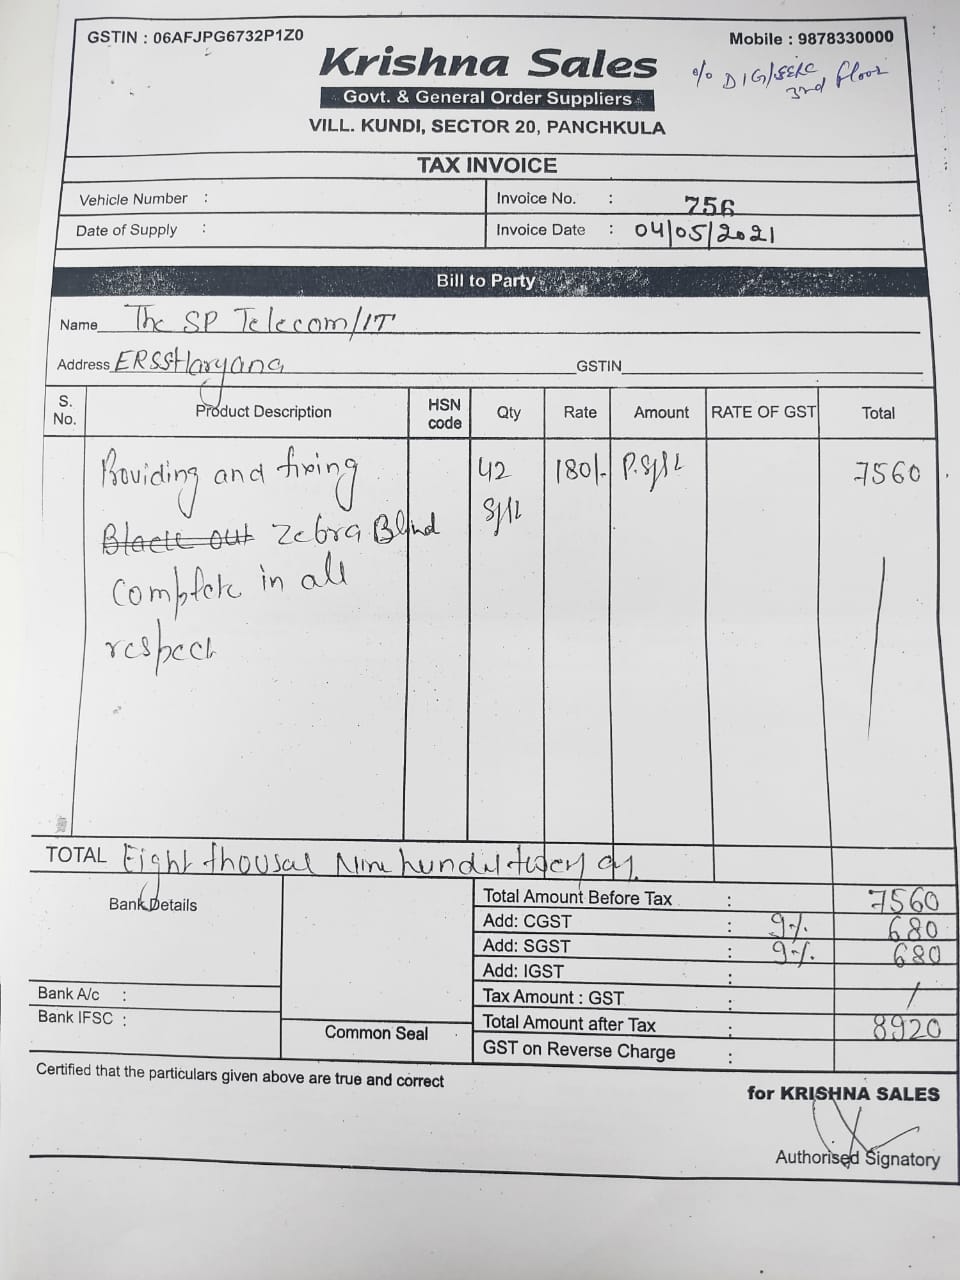 GSTIN : 06AFJPG6732P1Z0
Mobile : 9878330000
Krishna Sales
% DIG/SERC
3rd floor
Govt. & General Order Suppliers
VILL. KUNDI, SECTOR 20, PANCHKULA
TAX INVOICE
Vehicle Number :
Invoice No. : 756
Date of Supply :
Invoice Date : 04/05/2021
Bill to Party
Name The SP Telecom/IT
Address ERSS Haryana GSTIN
S. No. Product Description HSN code Qty Rate Amount RATE OF GST Total
Providing and fixing 42 180/- P. 7560
Black out Zebra Blind
Complete in all
respect
TOTAL Eight thousal Nine hundred
Bank Details
Total Amount Before Tax : 7560
Add: CGST : 9% 680
Add: SGST : 9% 680
Add: IGST :
Bank A/c :
Tax Amount : GST : /
Bank IFSC :
Common Seal
Total Amount after Tax : 8920
GST on Reverse Charge :
Certified that the particulars given above are true and correct
for KRISHNA SALES
Authorised Signatory